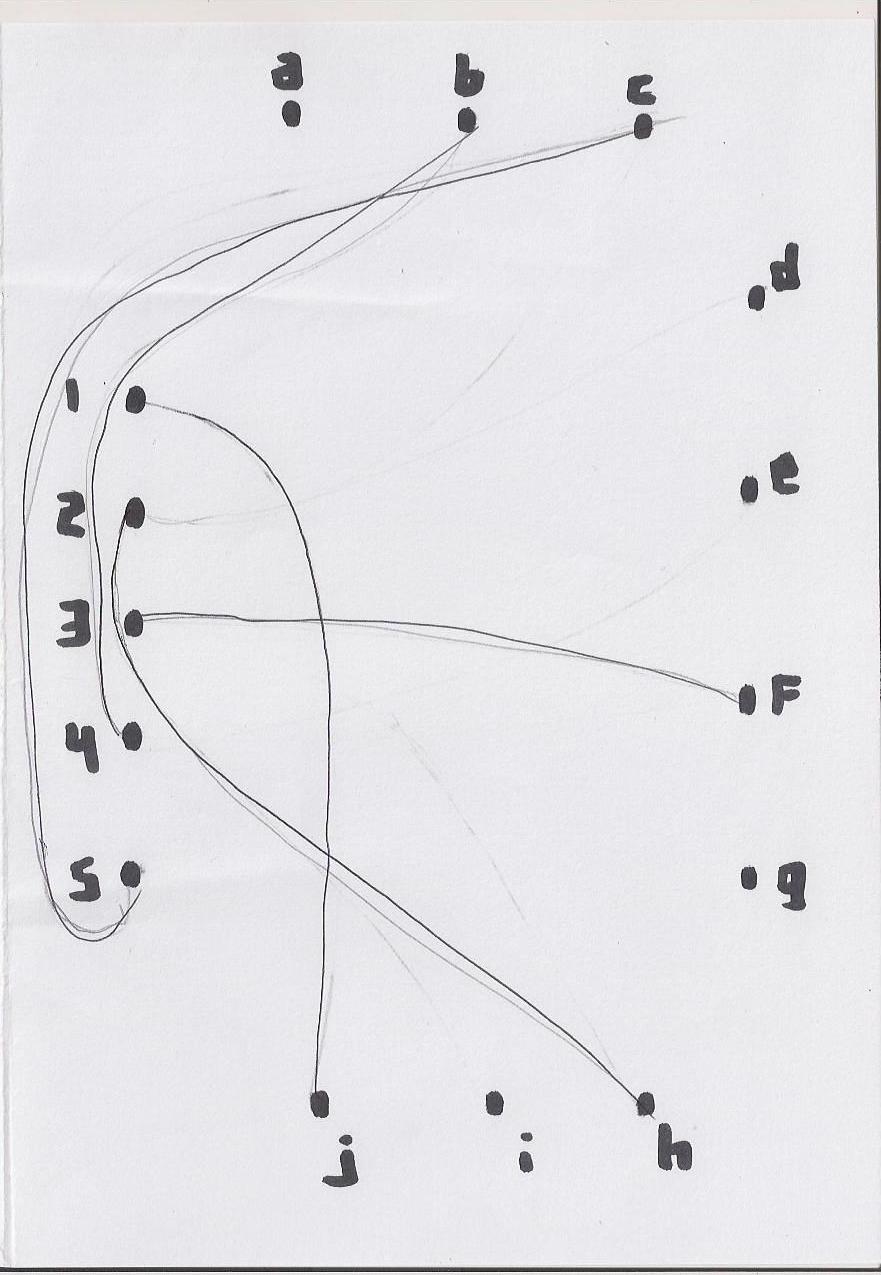 a b c
d
1
e
2
3
F
4
5
g
j i h